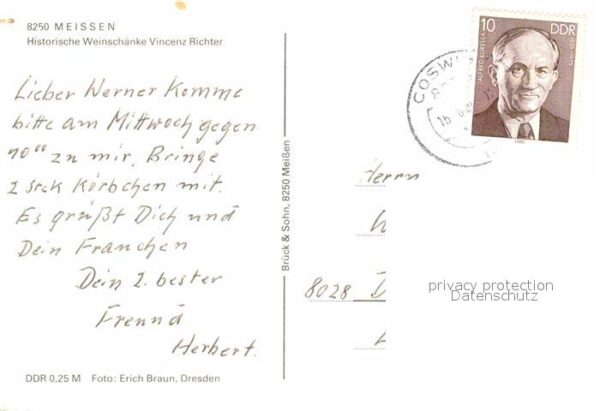 8250 MEISSEN
Historische Weinschänke Vincenz Richter
Lieber Werner Komme
bitte am Mittwoch gegen
10ºº zu mir, Bringe
2 Stck Körbchen mit.
Es grüßt Dich und
Dein Frauchen
Dein 2. bester
Freund
Herbert.
DDR 0,25 M Foto: Erich Braun, Dresden
Brück & Sohn, 8250 Meißen
10 DDR
ALFRED KURELLA
COSWI
Herrn
W
8028 D
privacy protection
Datenschutz